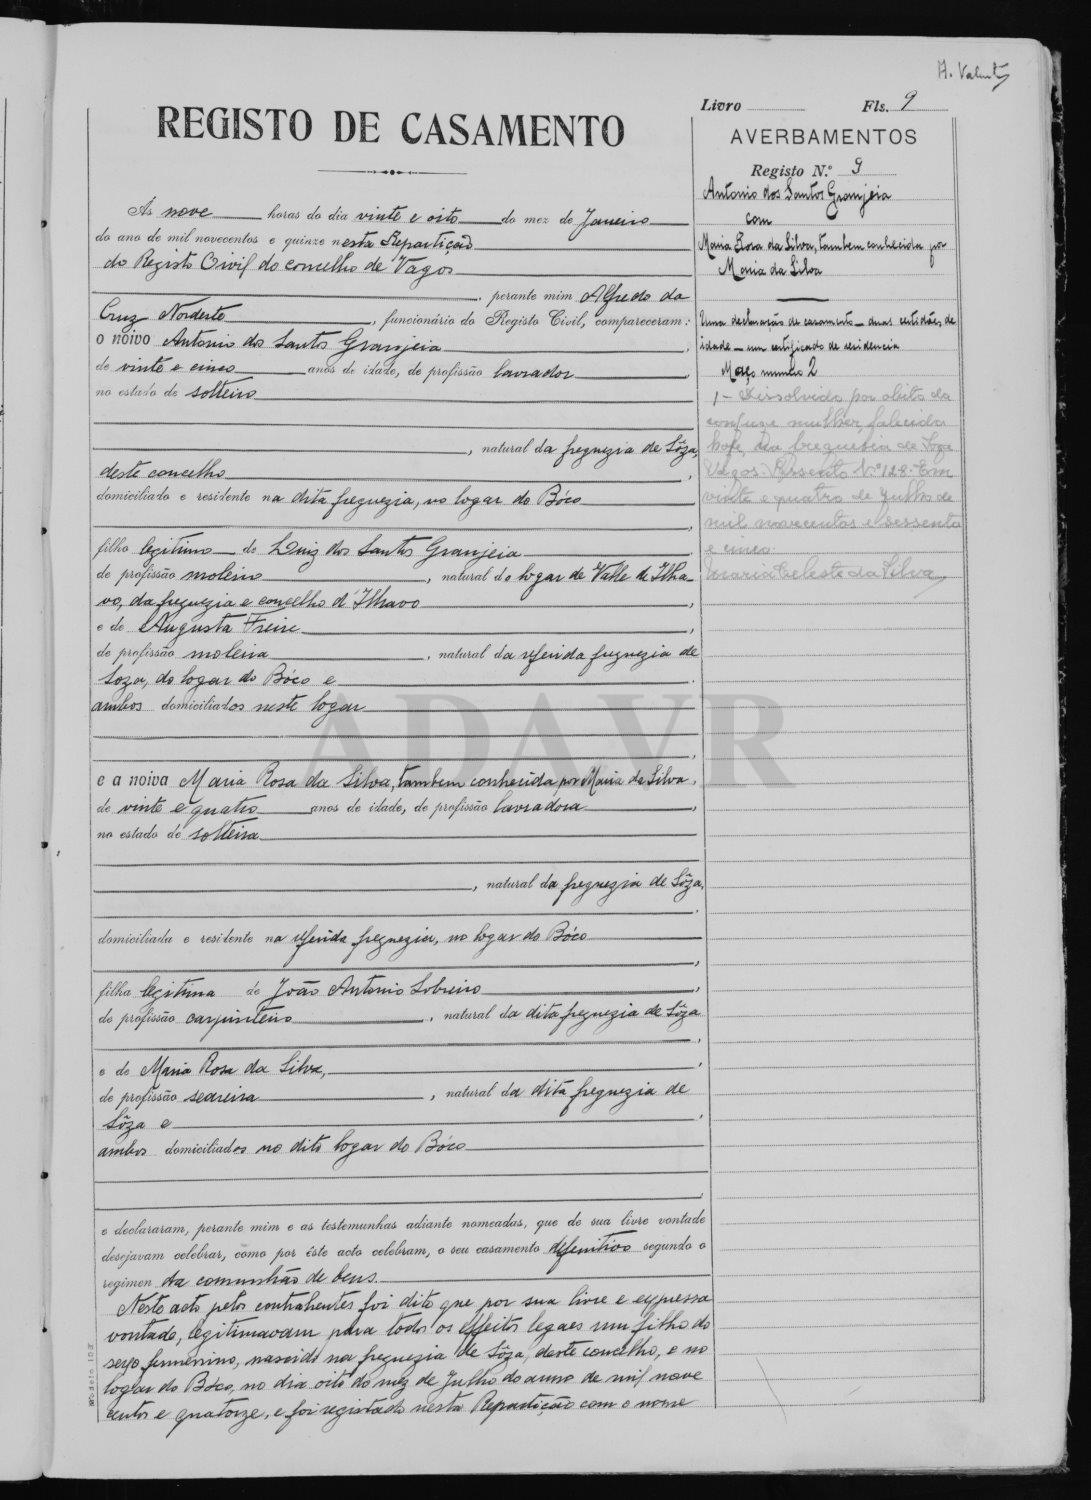 REGISTO DE CASAMENTO
Ás nove horas do dia vinte e oito do mez de Janeiro
do ano de mil novecentos e quinze nesta Repartição
do Registo Civil do concelho de Vagos
, perante mim Alfredo da
Cruz Nordeste, funcionário do Registo Civil, compareceram:
o noivo Antonio dos Santos Granjeia,
de vinte e cinco anos de idade, de profissão lavrador,
no estado de solteiro
, natural da freguezia de Sôza,
deste concelho,
domiciliado e residente na dita freguezia, no logar do Bóco
,
filho legitimo de Luiz dos Santos Granjeia
de profissão moleiro, natural do logar de Valle de Ilha-
vo, da freguezia e concelho d'Ilhavo,
e de Augusta Freire,
de profissão moleira, natural da referida freguezia de
Soza, do logar do Bóco e
ambos domiciliados neste logar
,
e a noiva Maria Rosa da Silva, tambem conhecida por Maria da Silva,
de vinte e quatro anos de idade, de profissão lavradora,
no estado de solteira
, natural da freguezia de Sôza,
,
domiciliada e residente na referida freguezia, no logar do Bóco
,
filha legitima de João Antonio Sobreiro,
de profissão carpinteiro, natural da dita freguezia de Sôza
,
e de Maria Rosa da Silva,
de profissão seareira, natural da dita freguezia de
Sôza e,
ambos domiciliados no dito logar do Bóco
,
e declararam, perante mim e as testemunhas adiante nomeadas, que de sua livre vontade
desejavam celebrar, como por êste acto celebram, o seu casamento definitivo segundo o
regimen da comunhão de bens.
Neste acto pelos contrahentes foi dito que por sua livre e expressa
vontade, legitimavam para todos os effeitos legaes um filho do
sexo femenino, nascido na freguezia de Sôza, deste concelho, e no
logar do Bóco, no dia oito do mez de Julho do anno de mil nove
centos e quatorze, e foi registado nesta Repartição com o nome
Modelo 103
Livro Fls. 9
AVERBAMENTOS
Registo N.º 9
Antonio dos Santos Granjeia
com
Maria Rosa da Silva, tambem conhecida por
Maria da Silva
Uma declaração de casamento - duas certidões de
idade - um certificado de residencia
Maço numero 2
1 - Dissolvido por obito da
conjuge mulher, falecida
hoje, na freguesia de Soza
Vagos. Assento Nº 128. Em
vinte e quatro de Julho de
mil novecentos e sessenta
e cinco.
Maria Celeste da Silva
ADAVR